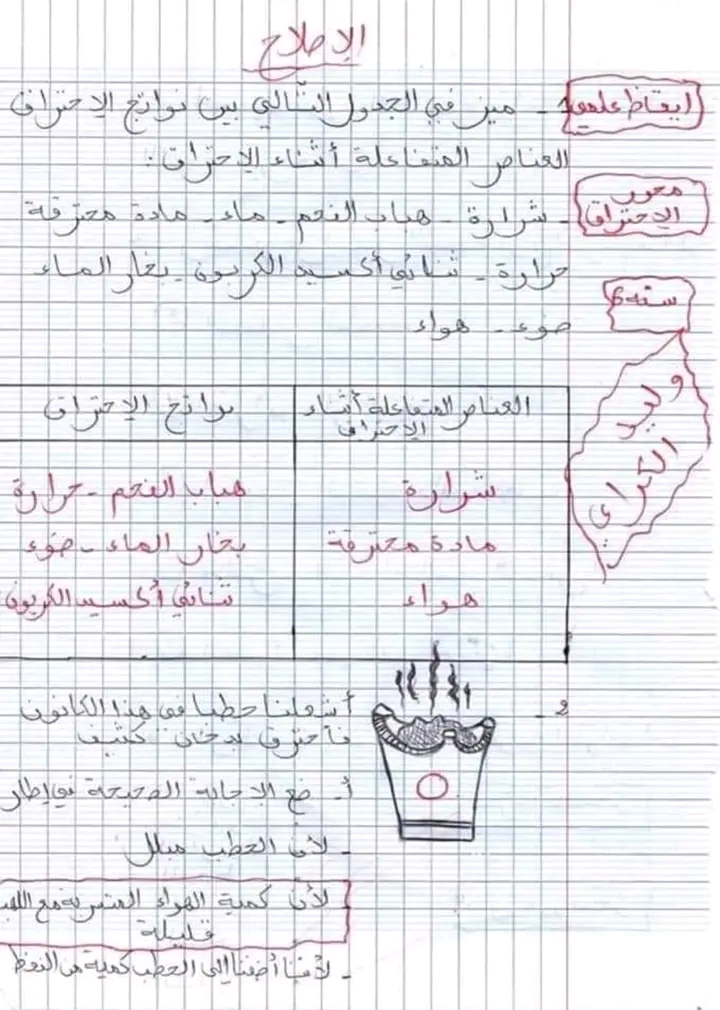 الإصلاح
إيقاظ علمي
1 - ميز في الجدول التالي بين نواتج الاحتراق
العناصر المتفاعلة أثناء الاحتراق :
محور
الاحتراق
- شرارة - هباب الفحم - ماء - مادة محترقة
حرارة - ثنائي أكسيد الكربون - بخار الماء
سنة 6
ضوء - هواء
وليد الكراي
العناصر المتفاعلة أثناء
الاحتراق
نواتج الاحتراق
شرارة
هباب الفحم - حرارة
مادة محترقة
بخار الماء - ضوء
هواء
ثنائي أكسيد الكربون
2 -
أشعلنا حطبا في هذا الكانون
فاحترق بدخان كثيف
أ - ضع الإجابة الصحيحة في إطار
- لأن الحطب مبلل
لأن كمية الهواء المتسربة مع اللهب
قليلة
- لأننا أضفنا إلى الحطب كمية من النفط